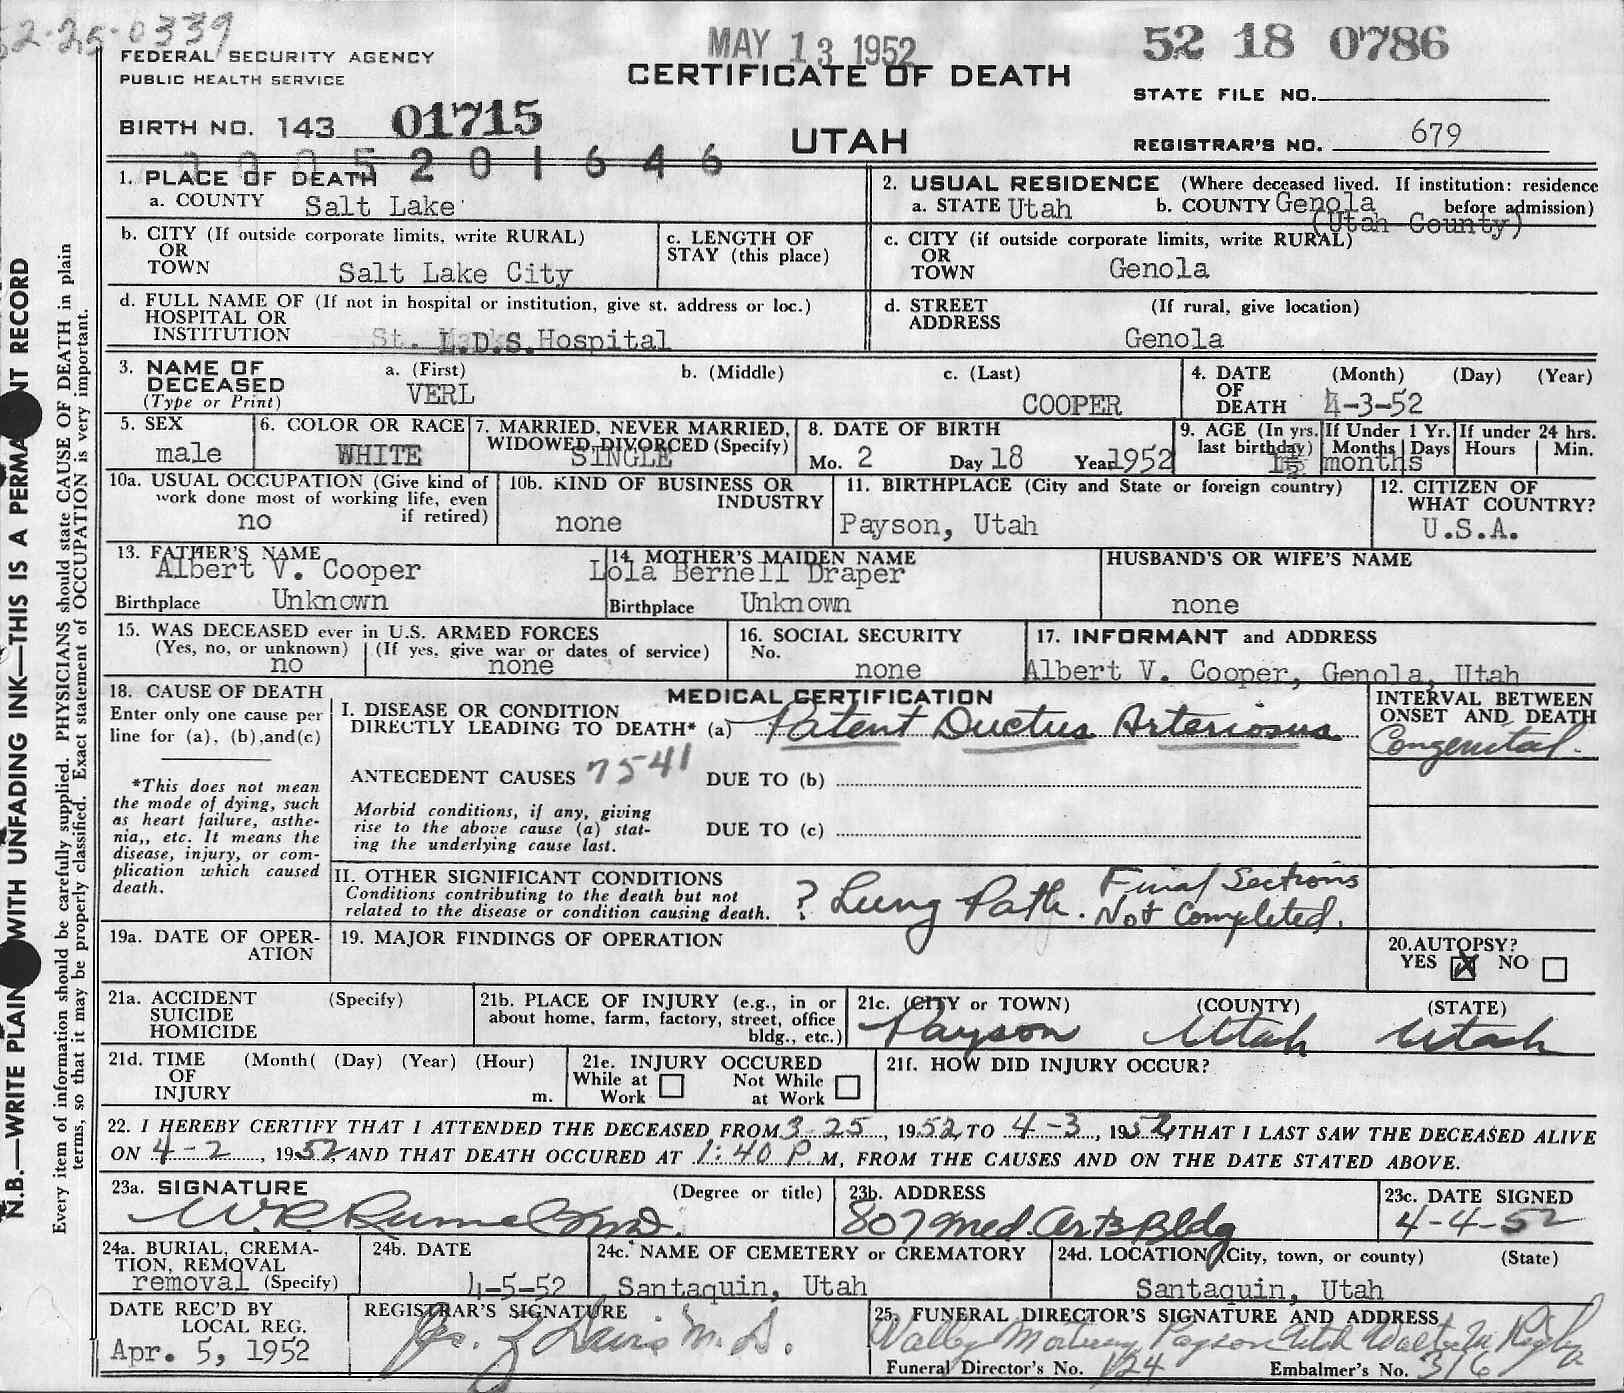 52-25-0339
FEDERAL SECURITY AGENCY
PUBLIC HEALTH SERVICE
MAY 13 1952
CERTIFICATE OF DEATH
UTAH
52 18 0786
STATE FILE NO.
BIRTH NO. 143 01715
REGISTRAR'S NO. 679
0005201646
1. PLACE OF DEATH
a. COUNTY Salt Lake
2. USUAL RESIDENCE (Where deceased lived. If institution: residence before admission)
a. STATE Utah b. COUNTY Genola
(Utah County)
b. CITY (If outside corporate limits, write RURAL)
OR
TOWN Salt Lake City
c. LENGTH OF
STAY (this place)
c. CITY (if outside corporate limits, write RURAL)
OR
TOWN Genola
d. FULL NAME OF (If not in hospital or institution, give st. address or loc.)
HOSPITAL OR
INSTITUTION St. L.D.S. Hospital
d. STREET (If rural, give location)
ADDRESS Genola
3. NAME OF
DECEASED
(Type or Print)
a. (First) VERL
b. (Middle)
c. (Last) COOPER
4. DATE (Month) (Day) (Year)
OF
DEATH 4-3-52
5. SEX
male
6. COLOR OR RACE
WHITE
7. MARRIED, NEVER MARRIED,
WIDOWED, DIVORCED (Specify)
SINGLE
8. DATE OF BIRTH
Mo. 2 Day 18 Year 1952
9. AGE (In yrs. last birthday) If Under 1 Yr. Months Days If under 24 hrs. Hours Min.
months
10a. USUAL OCCUPATION (Give kind of
work done most of working life, even
if retired)
no
10b. KIND OF BUSINESS OR
INDUSTRY
none
11. BIRTHPLACE (City and State or foreign country)
Payson, Utah
12. CITIZEN OF
WHAT COUNTRY?
U.S.A.
13. FATHER'S NAME
Albert V. Cooper
Birthplace Unknown
14. MOTHER'S MAIDEN NAME
Lola Bernell Draper
Birthplace Unknown
HUSBAND'S OR WIFE'S NAME
none
15. WAS DECEASED ever in U.S. ARMED FORCES
(Yes, no, or unknown) (If yes, give war or dates of service)
no none
16. SOCIAL SECURITY
No.
none
17. INFORMANT and ADDRESS
Albert V. Cooper, Genola, Utah
18. CAUSE OF DEATH
Enter only one cause per
line for (a), (b), and (c)
*This does not mean
the mode of dying, such
as heart failure, asthe-
nia,, etc. It means the
disease, injury, or com-
plication which caused
death.
MEDICAL CERTIFICATION
I. DISEASE OR CONDITION
DIRECTLY LEADING TO DEATH* (a) Patent Ductus Arteriosus
INTERVAL BETWEEN
ONSET AND DEATH
Congenital
ANTECEDENT CAUSES 7541 DUE TO (b)
Morbid conditions, if any, giving
rise to the above cause (a) stat-
ing the underlying cause last.
DUE TO (c)
II. OTHER SIGNIFICANT CONDITIONS
Conditions contributing to the death but not
related to the disease or condition causing death.
? Lung Path. Final Sections
Not Completed.
19a. DATE OF OPER-
ATION
19. MAJOR FINDINGS OF OPERATION
20. AUTOPSY?
YES X NO
21a. ACCIDENT (Specify)
SUICIDE
HOMICIDE
21b. PLACE OF INJURY (e.g., in or
about home, farm, factory, street, office
bldg., etc.)
21c. (CITY or TOWN) (COUNTY) (STATE)
Payson Utah Utah
21d. TIME (Month( (Day) (Year) (Hour)
OF
INJURY m.
21e. INJURY OCCURED
While at Work Not While at Work
21f. HOW DID INJURY OCCUR?
22. I HEREBY CERTIFY THAT I ATTENDED THE DECEASED FROM 3-25, 1952, TO 4-3, 1952, THAT I LAST SAW THE DECEASED ALIVE
ON 4-2, 1952, AND THAT DEATH OCCURED AT 1:40 P.M, FROM THE CAUSES AND ON THE DATE STATED ABOVE.
23a. SIGNATURE (Degree or title)
23b. ADDRESS
807 Med. Arts Bldg
23c. DATE SIGNED
4-4-52
24a. BURIAL, CREMA-
TION, REMOVAL
removal (Specify)
24b. DATE
4-5-52
24c. NAME OF CEMETERY or CREMATORY
Santaquin, Utah
24d. LOCATION (City, town, or county) (State)
Santaquin, Utah
DATE REC'D BY
LOCAL REG.
Apr. 5, 1952
REGISTRAR'S SIGNATURE
25. FUNERAL DIRECTOR'S SIGNATURE AND ADDRESS
Payson Utah
Funeral Director's No. 124 Embalmer's No. 316
N.B.—WRITE PLAIN WITH UNFADING INK—THIS IS A PERMA NT RECORD
Every item of information should be carefully supplied. PHYSICIANS should state CAUSE OF DEATH in plain
terms, so that it may be properly classified. Exact statement of OCCUPATION is very important.